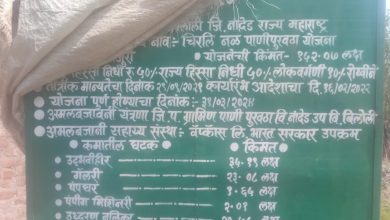 बिलोली जि. नांदेड राज्य महाराष्ट्र
नाव:- चिरली नळ पाणीपुरवठा योजना
योजनेची किंमत- १५२.०७ लक्ष
हिस्सा निधी रु. ५०/- राज्य हिस्सा निधी ५०/- लोकवर्गणी १०/-
तांत्रीक मान्यतेचा दिनांक २९/०९/२०२१ कार्यारंभ आदेशाचा दि. १६/०२/२०२२
योजना पूर्ण होण्याचा दिनांक:- ३१/०२/२०२४
अमलबजावनी यंत्रणा जि.प. ग्रामिण पाणी पुरवठा वि. नांदेड उप वि. बिलोली
अमलबजावनी सहाय्य संस्था:- वॅप्कोस लि. भारत सरकार उपक्रम
कामातील घटक किंमत
उद्भवविहिर ३५.१९ लक्ष
गॅलरी २३.०८ लक्ष
पंपघर १.६५ लक्ष
पंपींग मिशिनरी २.०१ लक्ष
उध्दरण नलिका लक्ष